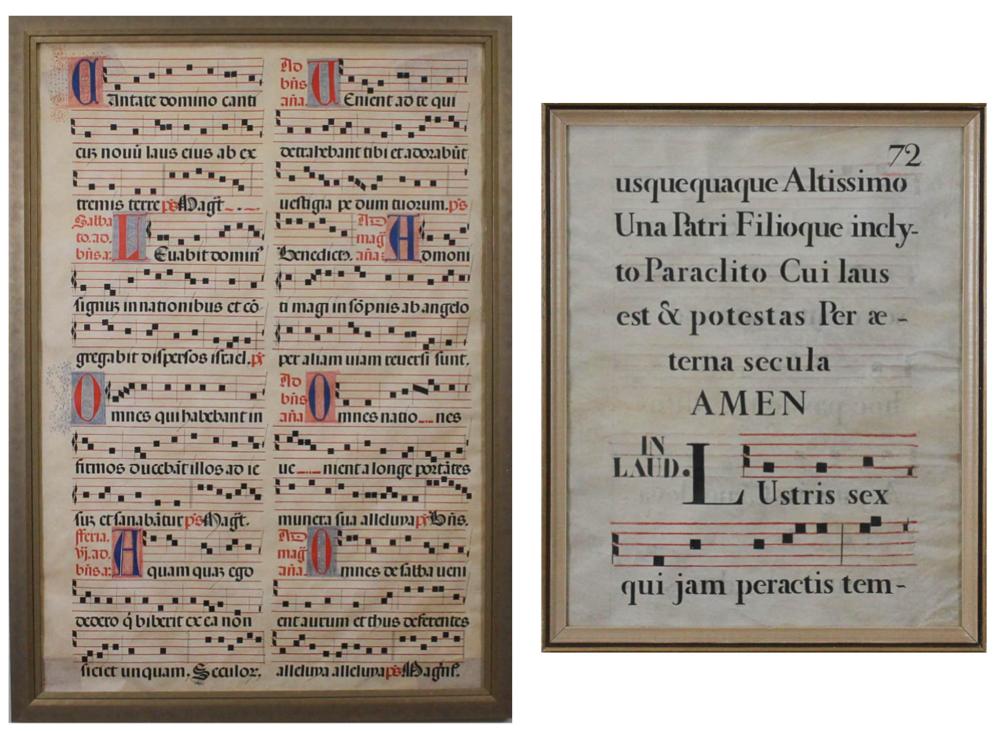 Cantate domino canti
cuz nouū laus eius ab ex
tremis terre ps Magt̄
Sabba
to. ad.
bn̄s a: LEuabit domin⁹
signuz in nationibus et cō
gregabit dispersos israel. ps
Omnes qui habebant in
firmos ducebāt illos ad ie
suz et sanabātur ps Magt̄.
fferia.
vj. ad.
bn̄s a: Aquam quaz ego
dedero q̄ biberit ex ea non
siciet unquam. Seculor.
Ad
bn̄s
an̄a. UEnient ad te qui
detrahebant tibi et adorabūt
uestigia pedum tuorum. ps
Benedictꝰ. Ad
maḡ
an̄a: Admoni
ti magi in sōpnis ab angelo
per aliam uiam reuersi sunt.
Ad
bn̄s
an̄a Omnes natio nes
ue nient a longe portātes
munera sua alleluya ps Bn̄s.
Ad
maḡ
an̄a. Omnes de salba ueni
ent aurum et thus deferentes
alleluya alleluya ps Magn̄f.
72
usquequaque Altissimo
Una Patri Filioque incly-
to Paraclito Cui laus
est & potestas Per æ-
terna secula
AMEN
IN
LAUD. LUstris sex
qui jam peractis tem-